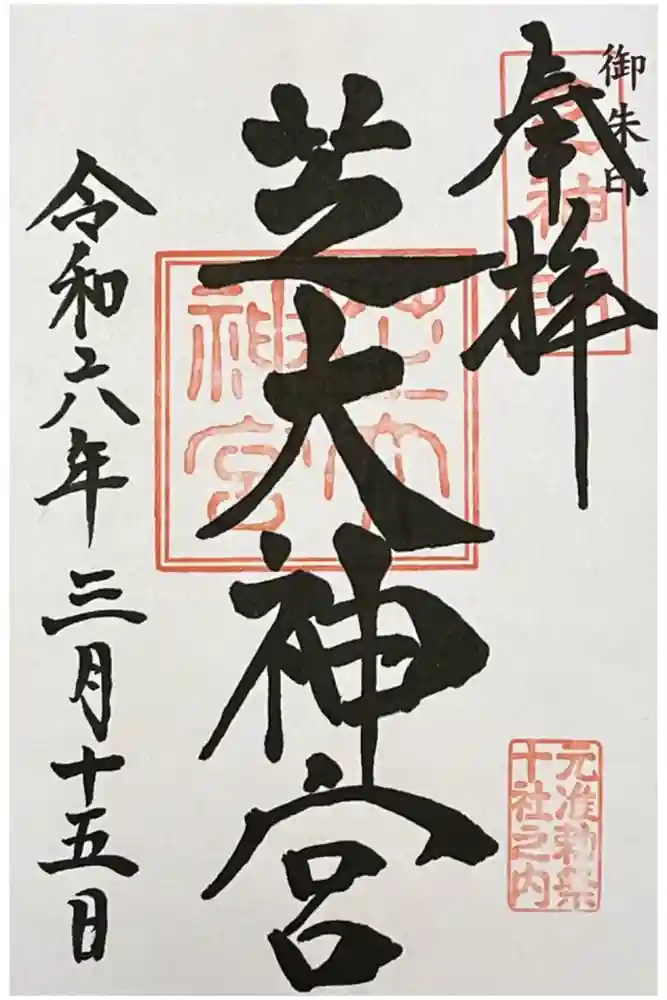 御朱印
奉拝
芝大神宮
令和六年三月十五日
芝大
神宮
元准勅祭
十社之内